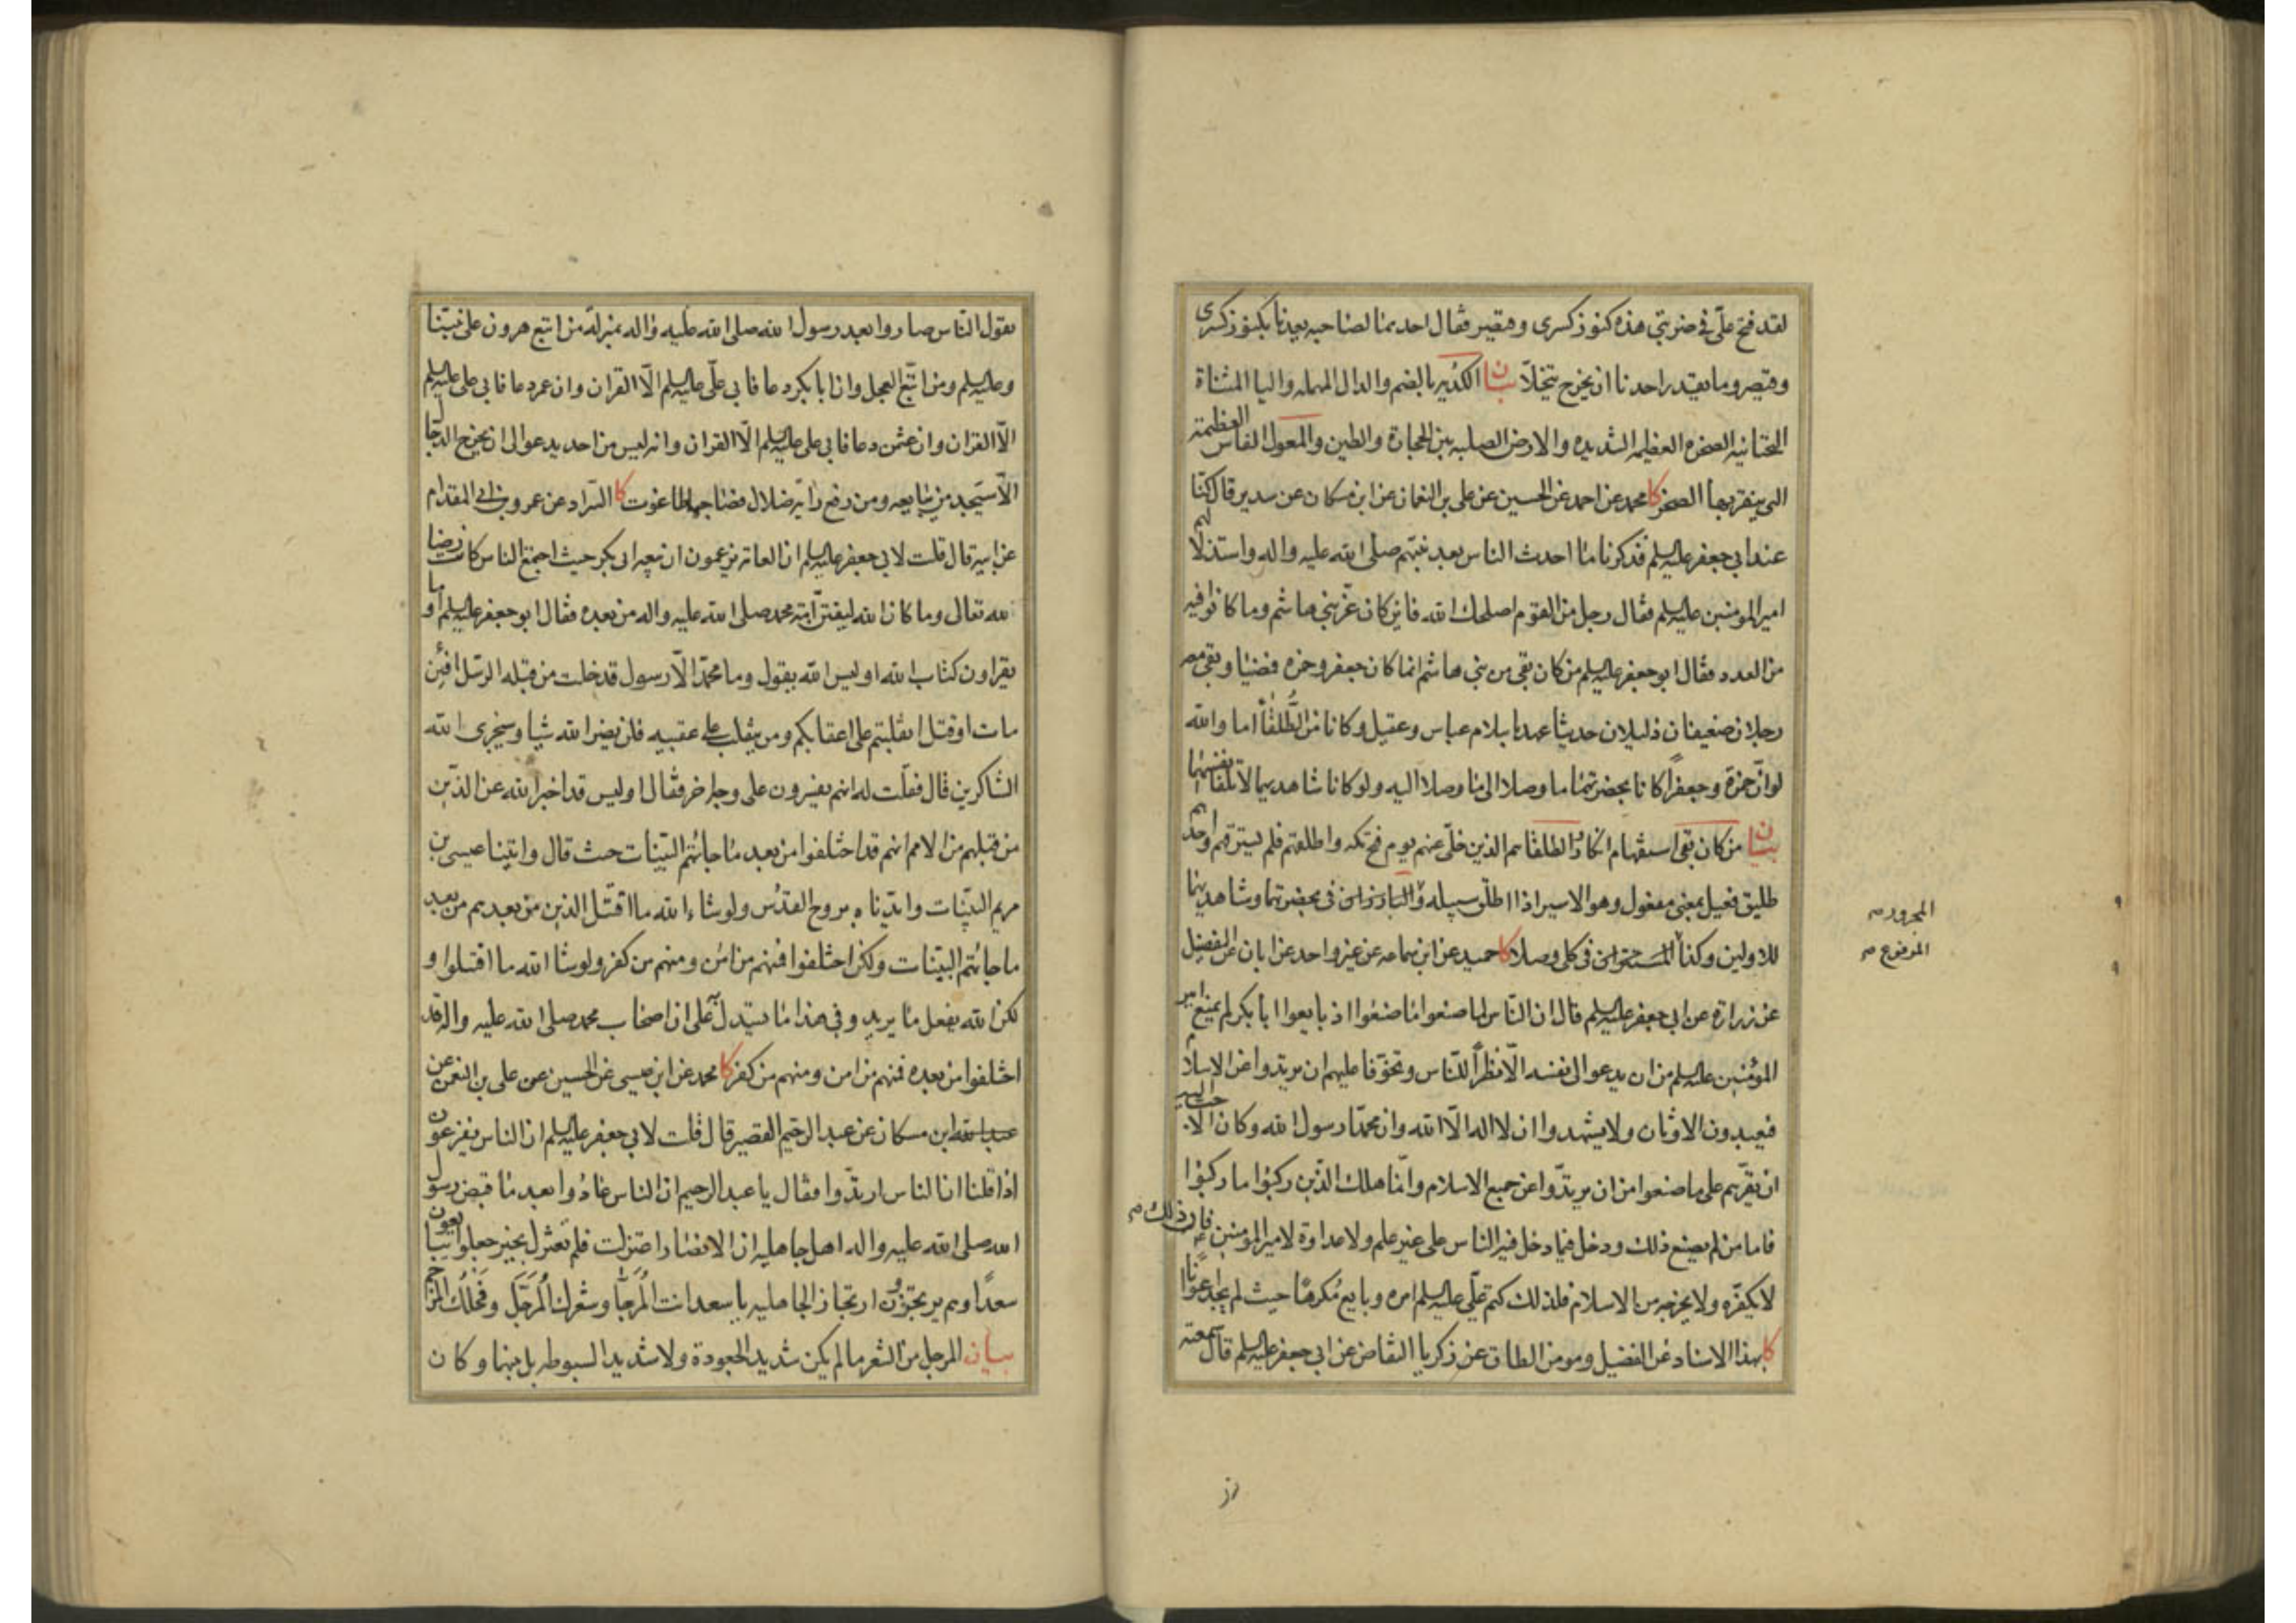 لقد فتح علّى فى ضربتى هذه كنوز كسرى وقيصر فقال احدهما لصاحبه يعدنا بكنوز كسرى
وقيصر وما يقدر احدنا ان يخرج يتخلّا بيان الكديه بالضم والدال المهمله واليا المثناة
التحتانيه الصخره العظيمه الشديده والارض الصلبه بين الحجارة والطين والمعول الفاس العظيمة
التى ينقر بها الصخر كا محمد عن احمد عن الحسين عن على بن النعمان عن ابن مسكان عن سدير قال كنّا
عند ابى جعفر عليه السلم فذكرنا ما احدث الناس بعد نبيّهم صلى الله عليه واله واستذلالهم
امير المومنين عليه السلم فقال رجل من القوم اصلحك الله فاين كان عزّ بنى هاشم وما كانوا فيه
من العدد فقال ابو جعفر عليه السلم من كان بقى من بنى هاشم انما كان جعفر وحمزه فمضيا وبقى معه
رجلان ضعيفان ذليلان حديثا عهد باسلام عباس وعقيل وكانا من الطُّلقاء اما والله
لو انّ حمزة وجعفرًا كانا بحضرتهما ما وصلا الى ما وصلا اليه ولو كانا شاهديهما لاتلفا نفسيهما
بيان من كان بقى استفهام انكار والطلقا هم الذين خلّى عنهم يوم فتح مكه واطلقهم فلم يسترقهم واحدهم
طليق فعيل بمعنى مفعول وهو الاسير اذا اطلق سبيله والبارزان فى بحضرتهما وشاهديهما
للاولين وكذا المستتران فى كلى وصلا كا حميد عن ابن سماعه عن غير واحد عن ابان عن الفضيل
عن زرارة عن ابى جعفر عليه السلم قال ان النّاس لما صنعوا ما صنعوا اذ بايعوا ابا بكر لم يمنع امير
المؤمنين عليه السلم من ان يدعو الى نفسه الّا نظرًا للنّاس وتخوّفا عليهم ان يرتدوا عن الاسلام
فيعبدون الاوثان ولا يشهدوا ان لا اله الّا الله وان محمّدا رسول الله وكان الاحب اليه
ان يقرّهم على ما صنعوا من ان يرتدّوا عن جميع الاسلام وانّما هلك الذّين ركبوا ما ركبوا
فاما من لم يصنع ذلك ودخل فيما دخل فيه الناس على غير علم ولا عداوة لامير المومنين فان ذلك
لا يكفّره ولا يخرجه من الاسلام فلذلك كتم علّى عليه السلم امره وبايع مُكرهًا حيث لم يجد اعوانًا
كا بهذا الاسناد عن الفضيل ومومن الطاق عن زكريا النقاض عن ابى جعفر عليه السلم قال سمعته
المجرور
المرفوع
يقول النّاس صاروا بعد رسول الله صلى الله عليه واله بمنزلة من اتبع هرون على نبيّنا
وعليه السلم ومن اتّبع العجل وان ابا بكر دعا فابى علّى عليه السلم الّا القران وان عمر دعا فابى على عليه السلم
الّا القران وان عثمن دعا فابى على عليه السلم الّا القران وانه ليس من احد يدعو الى ان يخرج الدجال
الّا سيجد من يبايعه ومن رفع راية ضلال فصاحبها طاغوت كا السّراد عن عمرو بن ابى المقدام
عن ابيه قال قلت لابى جعفر عليه السلم ان العامّة يزعمون ان بيعه ابى بكر حيث اجتمع الناس كانت رضيا
لله تعالى وما كان الله ليفتن امّة محمد صلى الله عليه واله من بعده فقال ابو جعفر عليه السلم اوما
يقراون كتاب الله اوليس الله يقول وما محمّد الّا رسول قد خلت من قبله الرسل افئن
مات او قتل انقلبتم على اعقابكم ومن ينقلب على عقبيه فلن يضر الله شيا وسيجزى الله
الشاكرين قال فقلت له انهم يفسرون على وجه اخر فقال اوليس قد اخبر الله عن الذّين
من قبلهم من الامم انهم قد اختلفوا من بعد ما جائتهم البيّنات حيث قال واتينا عيسى بن
مريم البيّنات وايّدناه بروح القدُس ولو شاء الله ما اقتتل الذين من بعدهم من بعد
ما جائتهم البيّنات ولكن اختلفوا فمنهم من امن ومنهم من كفر ولو شا الله ما اقتتلوا و
لكن الله يفعل ما يريد وفى هذا ما يستدل به على ان اصحاب محمد صلى الله عليه واله قد
اختلفوا من بعده فمنهم من امن ومنهم من كفر كا محمد عن ابن عيسى عن الحسين عن على بن النعمن عن
عبد الله ابن مسكان عن عبد الرحيم القصير قال قلت لابى جعفر عليه السلم ان الناس يفزعون
اذا قلنا ان الناس ارتدّوا فقال يا عبد الرحيم ان الناس عادُوا بعد ما قبض رسول
الله صلى الله عليه واله اهل جاهليه ان الانصار اعتزلت فلم تعتزل بخير جعلوا يبايعون
سعدًا وهم يرتجزون ارتجاز الجاهليه يا سعد انت المُرجّا وشعرك المُرَجّل وفحلك المرجم
بيان المرجل من الشعر ما لم يكن شديد الجعودة ولا شديد السبوطه بل بينهما وكان